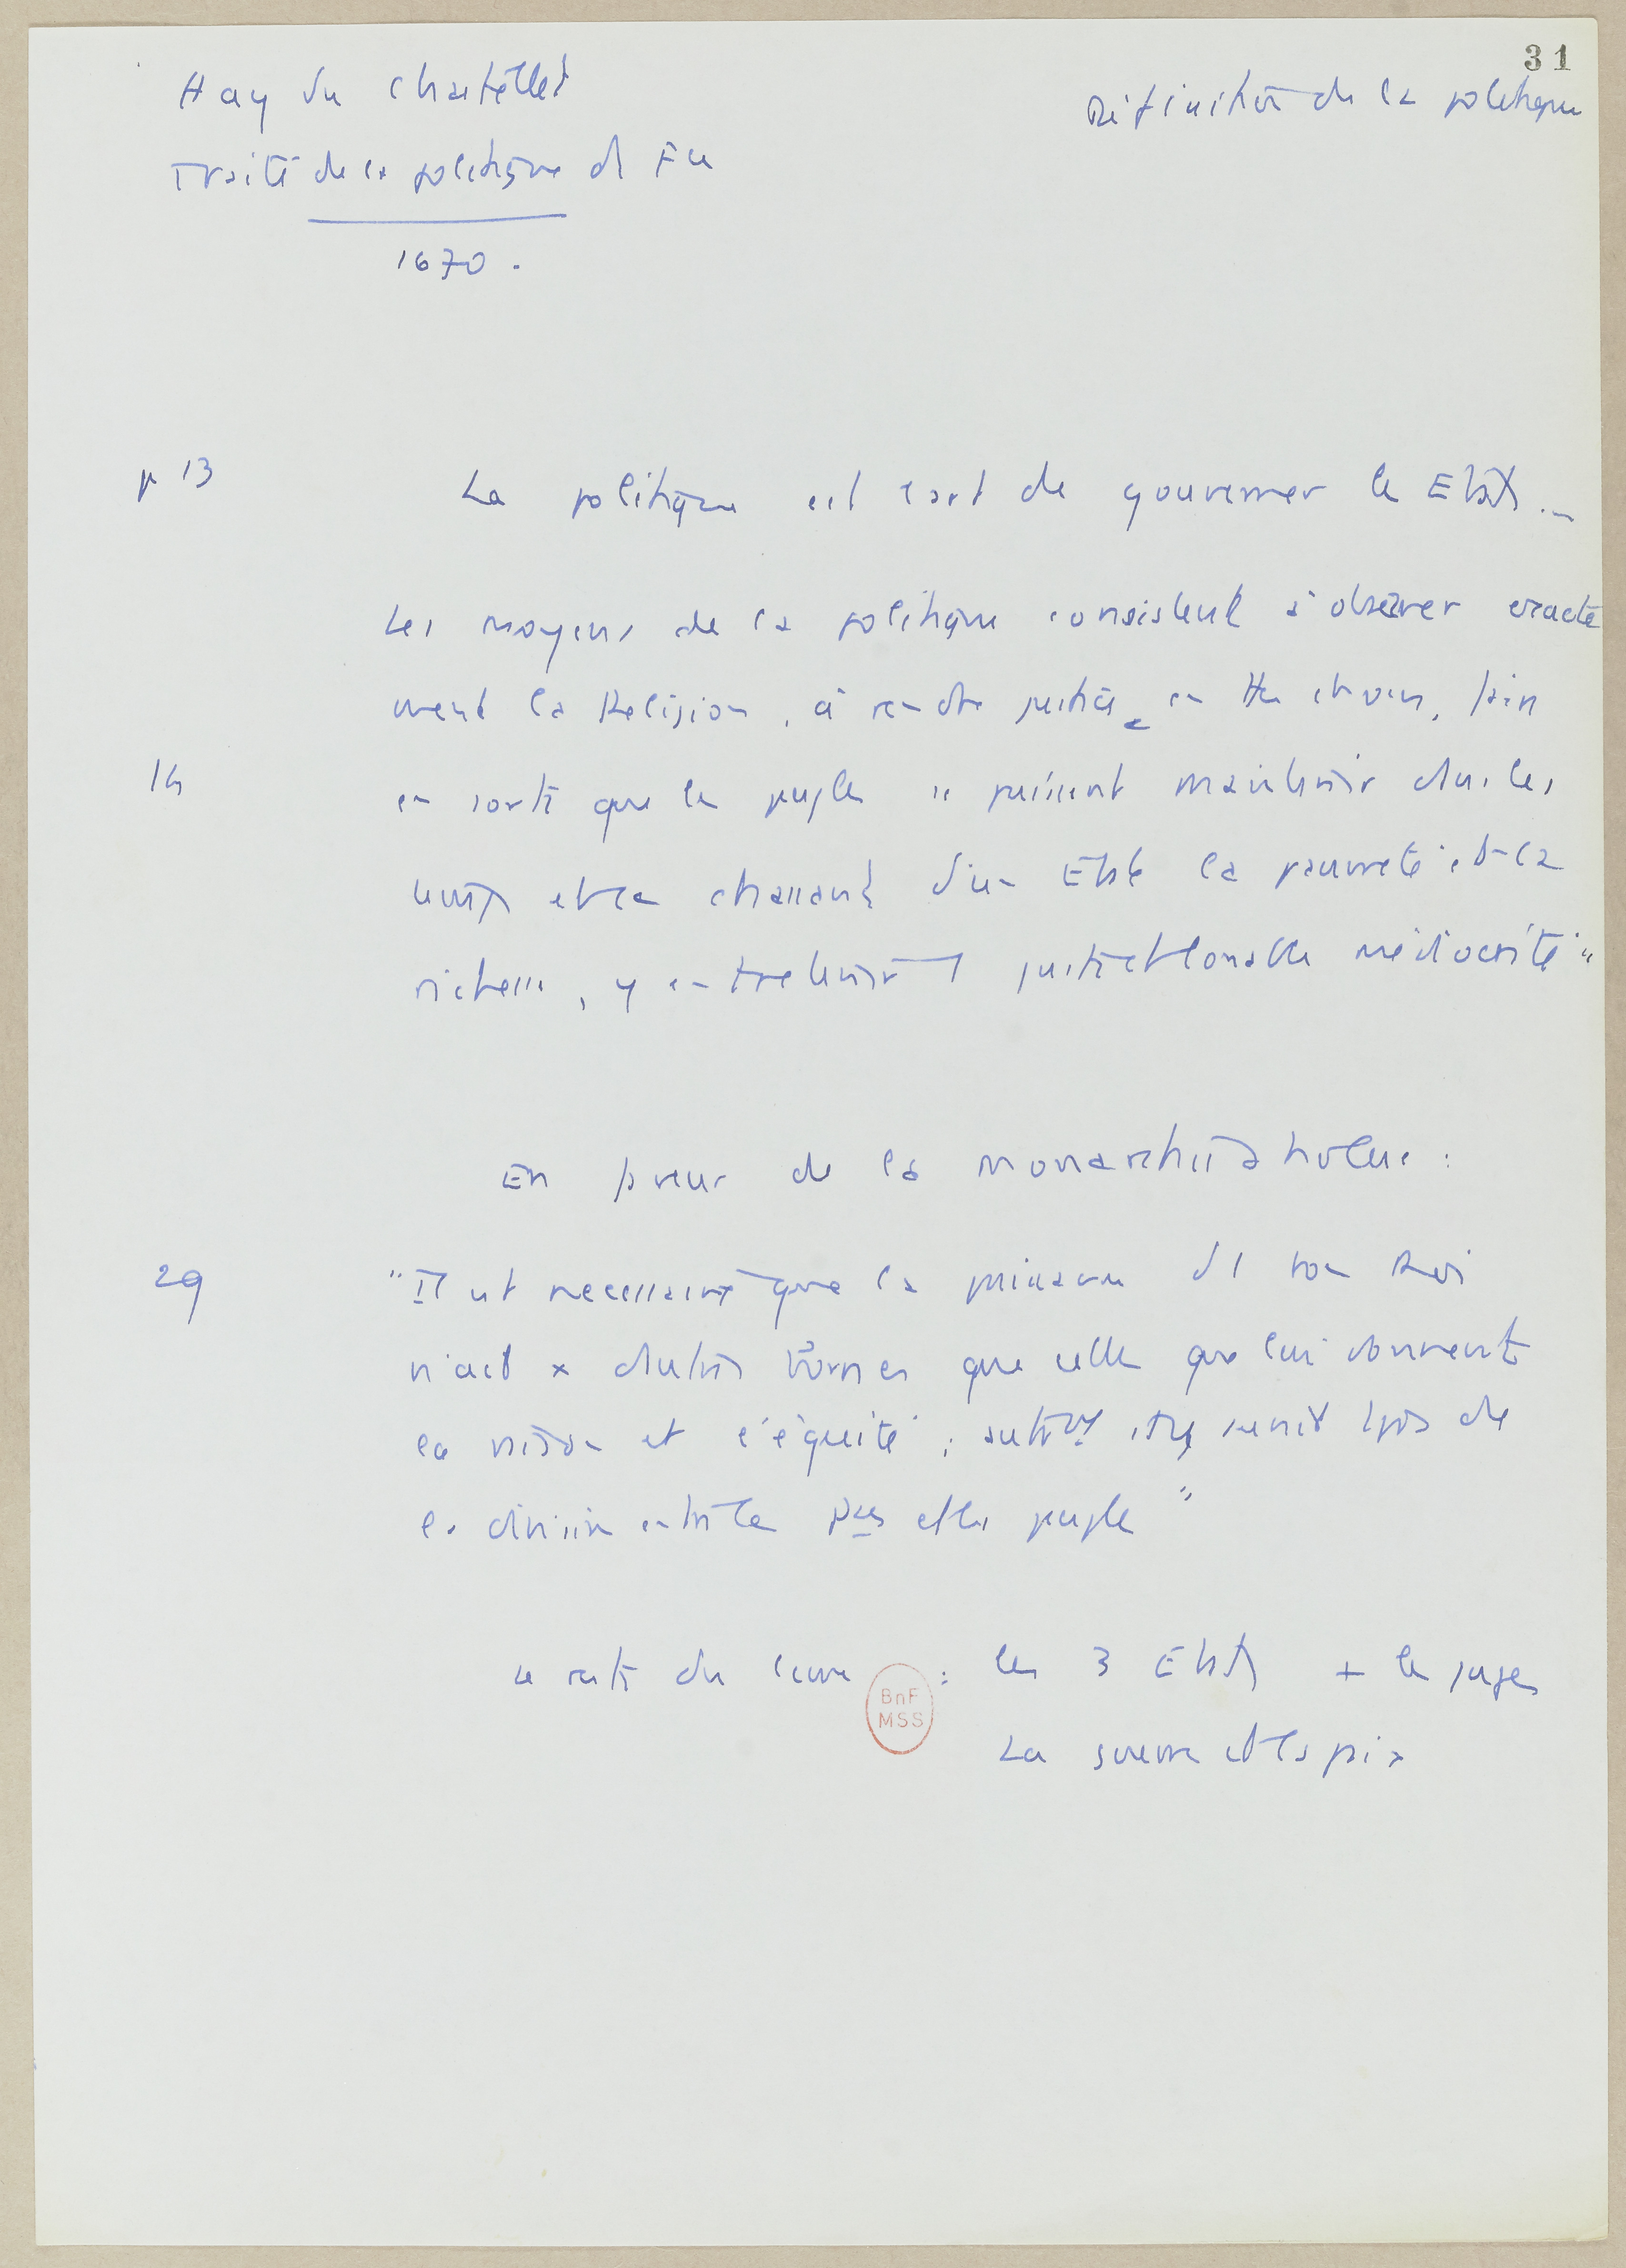 31
Hay du Chastellet
Définition de la politique
Traité de la politique de Fce
1670.
p 13 La politique est l'art de gouverner les Etats...
Les moyens de la politique consistent à observer exacte
ment la Religion, à rendre justice en ttes choses, faire
14 en sorte que les peuples se puissent maintenir dans les
temps et en chassant d'un Etat la pauvreté et la
richesse, y entretenir 1 juste et louable médiocrité"
En faveur de la monarchie absolue :
29 "Il est nécessaire que la puissance d'1 bon Roi
n'ait x d'autres bornes que celles que lui donnent
la raison et l'équité ; autrement il y aurait tjrs de
la division entre les Pces et les peuples"
Le reste du livre : les 3 Etats + les juges
La guerre et la paix
BnF
MSS